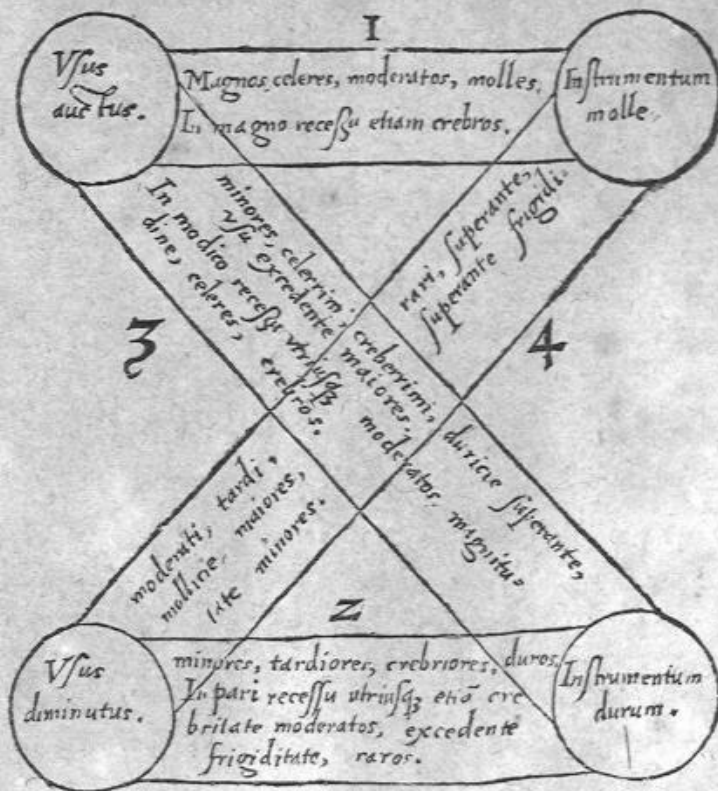 1
Vſus
auctus.
Magnos, celeres, moderatos, molles.
In magno receſſu etiam crebros.
Inſtrumentum
molle.
minores, celerrimi, creberrimi, duricie ſuperante,
vſu excedente maiores.
In modico receſſu vtriuſqꝫ moderatos, magnitu-
dine, celeres, crebros.
3
4
moderati, tardi, rari, ſuperante,
mollicie, maiores, ſuperante frigidi-
tate minores.
2
Vſus
diminutus.
minores, tardiores, crebriores, duros.
In pari receſſu vtriuſqꝫ etiā cre
britate moderatos, excedente
frigiditate, raros.
Inſtrumentum
durum.